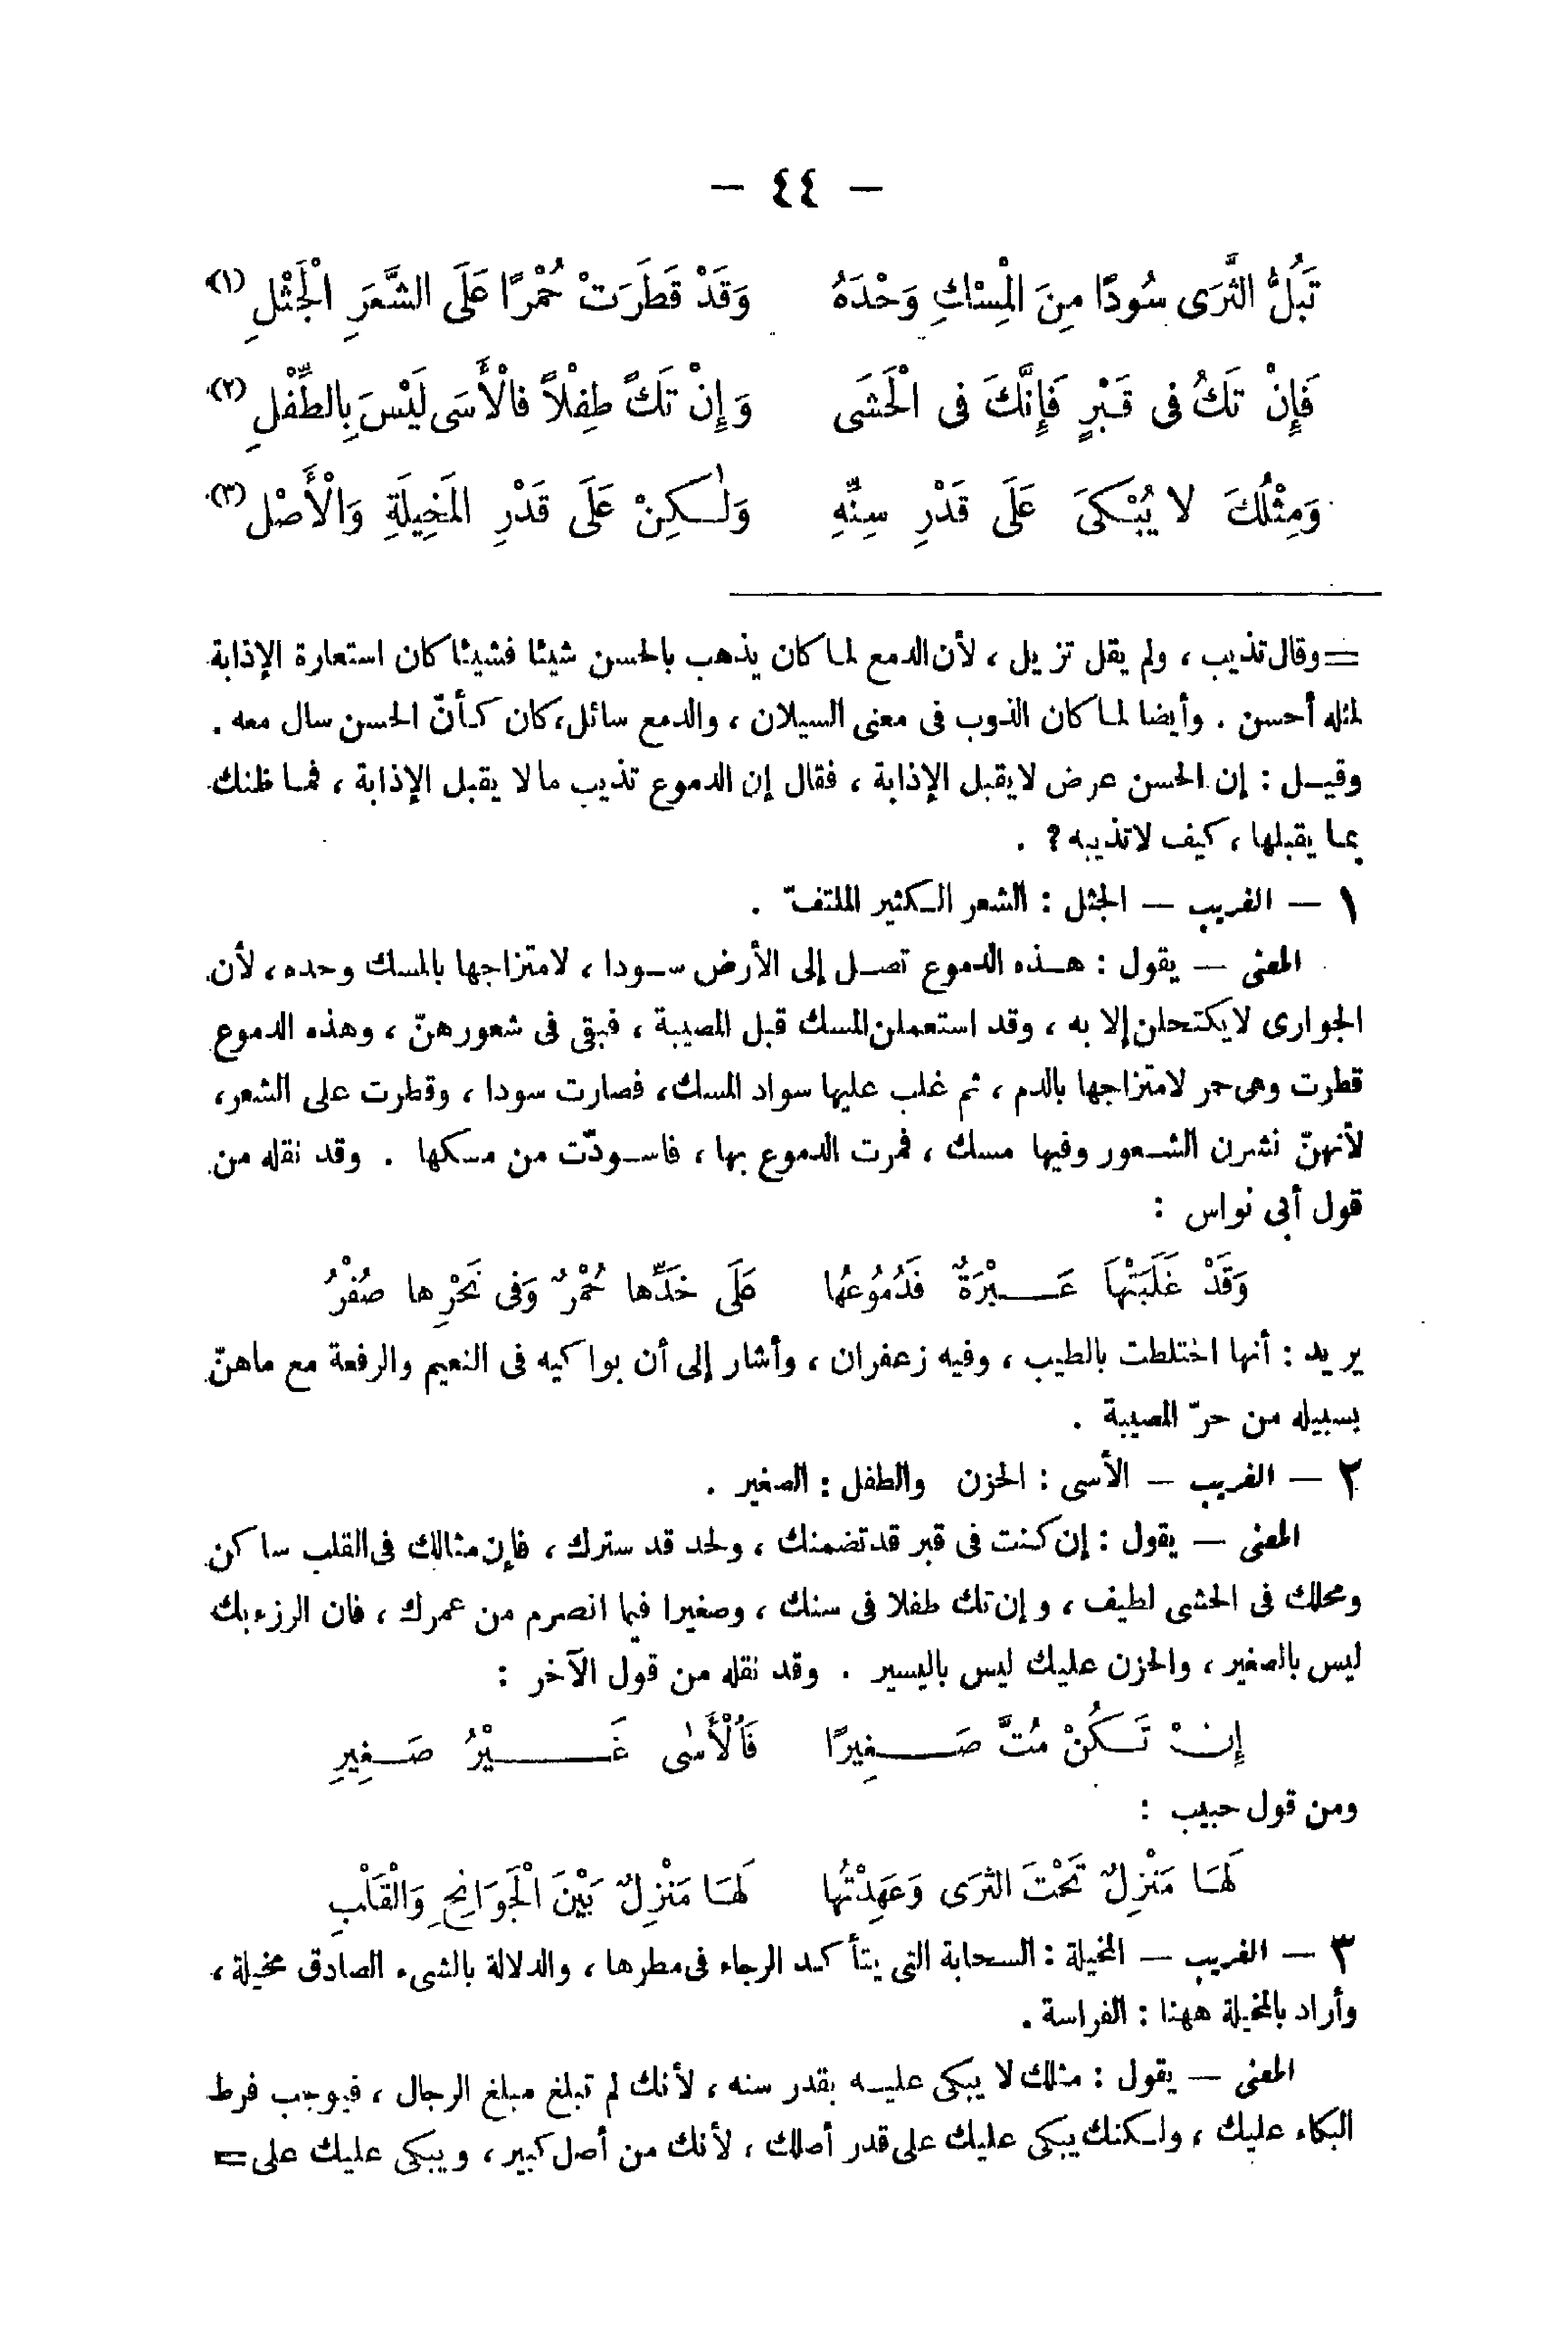 — ٤٤ —
تَبُلُّ الثَّرَى سُودًا مِنَ الْمِسْكِ وَحْدَهُ وَقَدْ قَطَرَتْ حُمْرًا عَلَى الشَّعَرِ الْجَثْلِ (١)
فَإِنْ تَكُ فى قَبْرٍ فَإِنَّكَ فى الْحَشَى وَإِنْ تَكُ طِفْلاً فالْأَسَى لَيْسَ بِالطِّفْلِ (٢)
وَمِثْلُكَ لا يُبْكَى عَلَى قَدْرِ سِنِّهِ وَلٰكِنْ عَلَى قَدْرِ المَخِيلَةِ وَالْأَصْلِ (٣)
= وقال تذيب ، ولم يقل تزيل ، لأن الدمع لما كان يذهب بالحسن شيئا فشيئا كان استعارة الإذابة
لمثله أحسن . وأيضا لما كان الذوب فى معنى السيلان ، والدمع سائل ، كان كأنّ الحسن سال معه .
وقيل : إن الحسن عرض لا يقبل الإذابة ، فقال إن الدموع تذيب ما لا يقبل الإذابة ، فما ظنك
بما يقبلها ، كيف لا تذيبه ؟ .
١ — الغريب — الجثل : الشعر الكثير الملتفّ .
المعنى — يقول : هذه الدموع تصل إلى الأرض سودا ، لامتزاجها بالمسك وحده ، لأن
الجوارى لا يكتحلن إلا به ، وقد استعملن المسك قبل المصيبة ، فبقى فى شعورهنّ ، وهذه الدموع
قطرت وهى حمر لامتزاجها بالدم ، ثم غلب عليها سواد المسك ، فصارت سودا ، وقطرت على الشعر ،
لأنهنّ نشرن الشعور وفيها مسك ، فمرت الدموع بها ، فاسودّت من مسكها . وقد نقله من
قول أبى نواس :
وَقَدْ غَلَبَتْهَا عَبْرَةٌ فَدُمُوعُها عَلَى خَدِّها حُمْرٌ وَفى نَحْرِها صُفْرُ
يريد : أنها اختلطت بالطيب ، وفيه زعفران ، وأشار إلى أن بواكيه فى النعيم والرفعة مع ماهنّ
بسبيله من حرّ المصيبة .
٢ — الغريب — الأسى : الحزن والطفل : الصغير .
المعنى — يقول : إن كنت فى قبر قد تضمنك ، ولحد قد سترك ، فإن مثالك فى القلب ساكن
ومحلك فى الحشى لطيف ، وإن تك طفلا فى سنك ، وصغيرا فيما انصرم من عمرك ، فان الرزء بك
ليس بالصغير ، والحزن عليك ليس باليسير . وقد نقله من قول الآخر :
إِنْ تَكُنْ مُتَّ صَغِيرًا فَالْأَسٰى غَيْرُ صَغِيرِ
ومن قول حبيب :
لَهَا مَنْزِلٌ تَحْتَ الثرَى وَعَهِدْتُها لَهَا مَنْزِلٌ بَيْنَ الْجَوَانِحِ وَالْقَلْبِ
٣ — الغريب — المخيلة : السحابة التى يتأكد الرجاء فى مطرها ، والدلالة بالشىء الصادق مخيلة ،
وأراد بالمخيلة ههنا : الفراسة .
المعنى — يقول : مثلك لا يبكى عليه بقدر سنه ، لأنك لم تبلغ مبلغ الرجال ، فيوجب فرط
البكاء عليك ، ولكنك يبكى عليك على قدر أصلك ، لأنك من أصل كبير ، ويبكى عليك على =